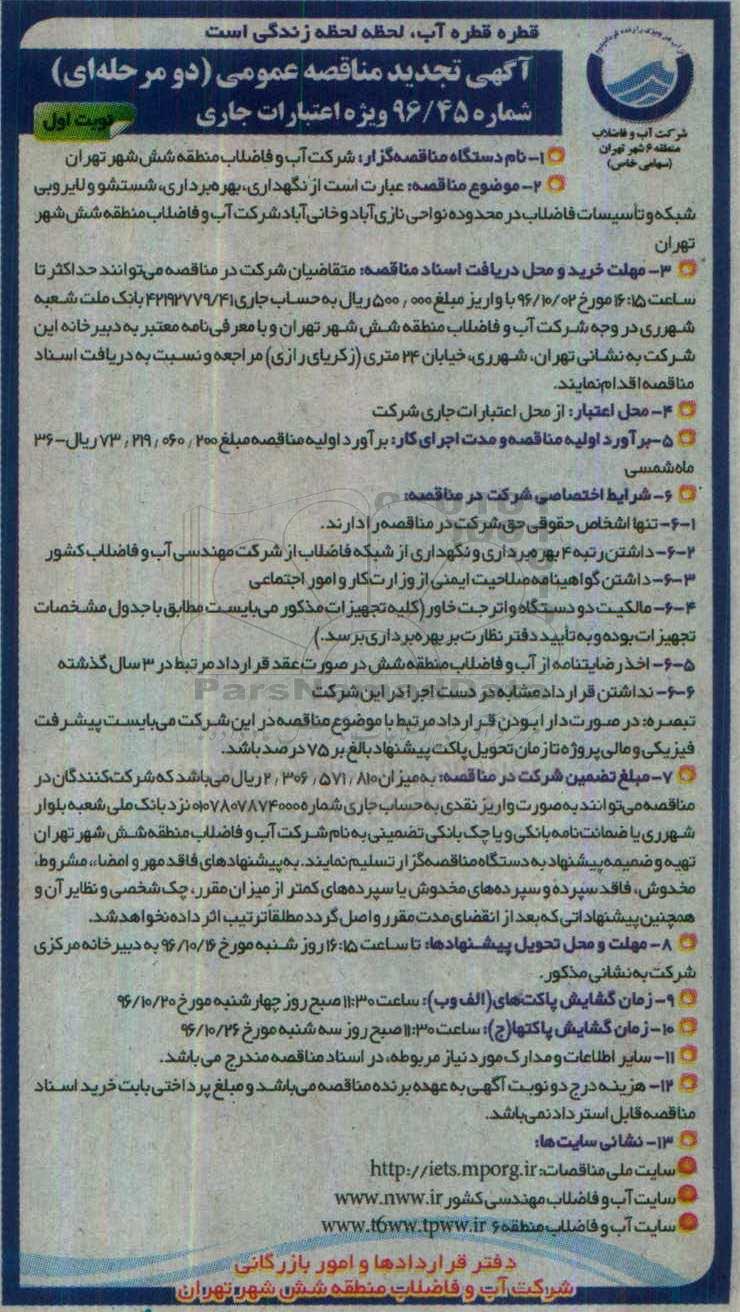 قطره قطره آب، لحظه لحظه زندگی است
آگهی تجدید مناقصه عمومی (دو مرحله‌ای)
شماره ۹۶/۴۵ ویژه اعتبارات جاری
نوبت اول
شرکت آب و فاضلاب
منطقه ۶ شهر تهران
(سهامی خاص)
۱- نام دستگاه مناقصه‌گزار: شرکت آب و فاضلاب منطقه شش شهر تهران
۲- موضوع مناقصه: عبارت است از نگهداری، بهره‌برداری، شستشو و لایروبی
شبکه و تأسیسات فاضلاب در محدوده نواحی نازی‌آباد و خانی‌آباد شرکت آب و فاضلاب منطقه شش شهر
تهران
۳- مهلت خرید و محل دریافت اسناد مناقصه: متقاضیان شرکت در مناقصه می‌توانند حداکثر تا
ساعت ۱۶:۱۵ مورخ ۹۶/۱۰/۰۲ با واریز مبلغ ۵۰۰,۰۰۰ ریال به حساب جاری ۴۲۱۹۲۷۷۹/۴۱ بانک ملت شعبه
شهرری در وجه شرکت آب و فاضلاب منطقه شش شهر تهران و با معرفی‌نامه معتبر به دبیرخانه این
شرکت به نشانی تهران، شهرری، خیابان ۲۴ متری (زکریای رازی) مراجعه و نسبت به دریافت اسناد
مناقصه اقدام نمایند.
۴- محل اعتبار: از محل اعتبارات جاری شرکت
۵- برآورد اولیه مناقصه و مدت اجرای کار: برآورد اولیه مناقصه مبلغ ۷۳,۲۱۹,۰۶۰,۲۰۰ ریال- ۳۶
ماه شمسی
۶- شرایط اختصاصی شرکت در مناقصه:
۶-۱- تنها اشخاص حقوقی حق شرکت در مناقصه را دارند.
۶-۲- داشتن رتبه ۴ بهره‌برداری و نگهداری از شبکه فاضلاب از شرکت مهندسی آب و فاضلاب کشور
۶-۳- داشتن گواهینامه صلاحیت ایمنی از وزارت کار و امور اجتماعی
۶-۴- مالکیت دو دستگاه واتر جت خاور (کلیه تجهیزات مذکور می‌بایست مطابق با جدول مشخصات
تجهیزات بوده و به تأیید دفتر نظارت بر بهره‌برداری برسد.)
۶-۵- اخذ رضایتنامه از آب و فاضلاب منطقه شش در صورت عقد قرارداد مرتبط در ۳ سال گذشته
۶-۶- نداشتن قرارداد مشابه در دست اجرا در این شرکت
ParsNamadData
تبصره: در صورت دارا بودن قرارداد مرتبط با موضوع مناقصه در این شرکت می‌بایست پیشرفت
فیزیکی و مالی پروژه تا زمان تحویل پاکت پیشنهاد بالغ بر ۷۵ درصد باشد.
۷- مبلغ تضمین شرکت در مناقصه: به میزان ۲,۳۰۶,۵۷۱,۸۱۰ ریال می‌باشد که شرکت‌کنندگان در
مناقصه می‌توانند به صورت واریز نقدی به حساب جاری شماره ۰۱۰۷۸۰۷۸۷۴۰۰۰ نزد بانک ملی شعبه بلوار
شهرری یا ضمانت‌نامه بانکی و یا چک بانکی تضمینی به نام شرکت آب و فاضلاب منطقه شش شهر تهران
تهیه و ضمیمه پیشنهاد به دستگاه مناقصه‌گزار تسلیم نمایند. به پیشنهادهای فاقد مهر و امضاء، مشروط،
مخدوش، فاقد سپرده و سپرده‌های مخدوش یا سپرده‌های کمتر از میزان مقرر، چک شخصی و نظایر آن و
همچنین پیشنهاداتی که بعد از انقضای مدت مقرر واصل گردد مطلقاً ترتیب اثر داده نخواهد شد.
۸- مهلت و محل تحویل پیشنهادها: تا ساعت ۱۶:۱۵ روز شنبه مورخ ۹۶/۱۰/۱۶ به دبیرخانه مرکزی
شرکت به نشانی مذکور.
۹- زمان گشایش پاکت‌های (الف و ب): ساعت ۱۱:۳۰ صبح روز چهارشنبه مورخ ۹۶/۱۰/۲۰
۱۰- زمان گشایش پاکتها (ج): ساعت ۱۱:۳۰ صبح روز سه شنبه مورخ ۹۶/۱۰/۲۶
۱۱- سایر اطلاعات و مدارک مورد نیاز مربوطه، در اسناد مناقصه مندرج می باشد.
۱۲- هزینه درج دو نوبت آگهی به عهده برنده مناقصه می‌باشد و مبلغ پرداختی بابت خرید اسناد
مناقصه قابل استرداد نمی‌باشد.
۱۳- نشانی سایت‌ها:
سایت ملی مناقصات: http://iets.mporg.ir
سایت آب و فاضلاب مهندسی کشور www.nww.ir
سایت آب و فاضلاب منطقه ۶ www.t6ww.tpww.ir
دفتر قراردادها و امور بازرگانی
شرکت آب و فاضلاب منطقه شش شهر تهران